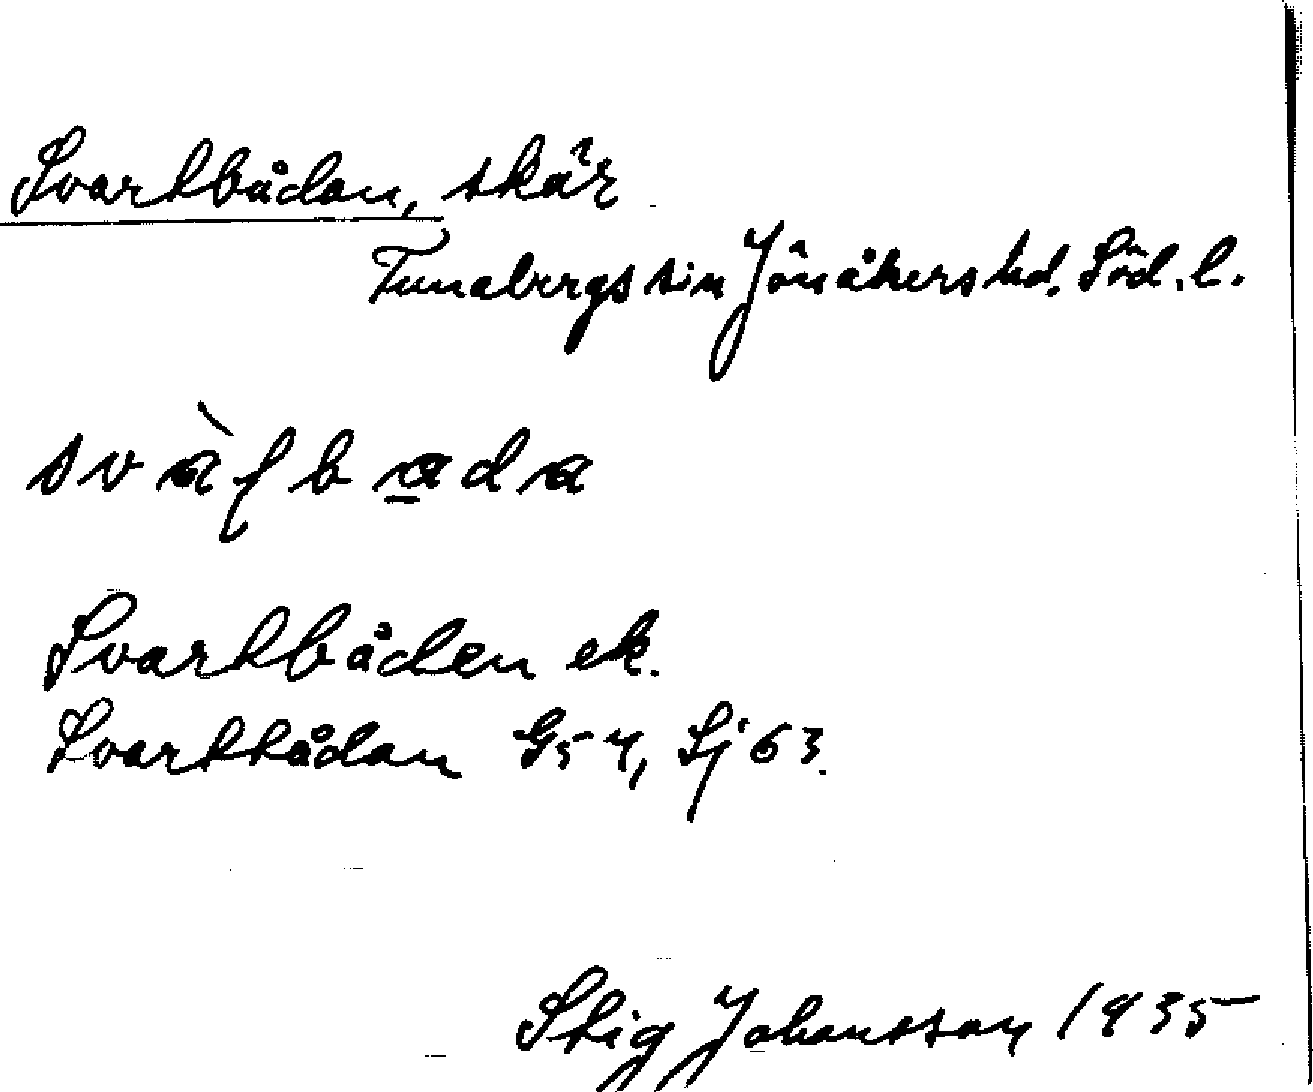 Svartbådan, skär
Tunabergs sn Jönåkers hd. Söd. l.
svàʃbada
Svartbåden ek.
Svartbådan G57, Sj 63.
Stig Johansson 1935